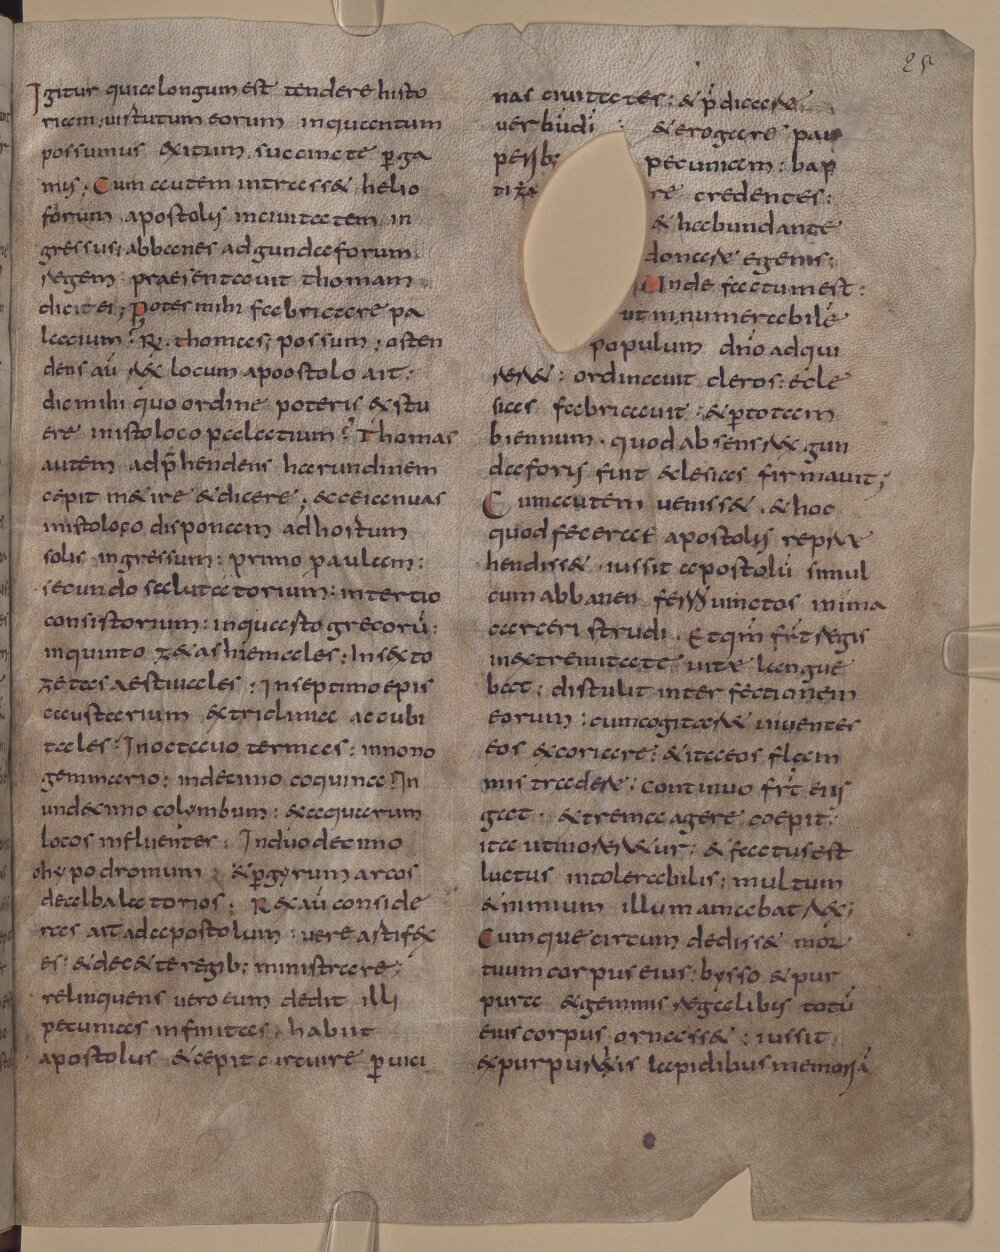 25
Igitur quia longum est tendere histo
riam; uirtutum eorum inquantum
possumus & itum succincte p̱ ga
mus; Cum autem intrass& helio
forum apostolus inciuitatem in
gressus; abbanes ad gundaforum
regem praesentauit thomam
dicit ei; Potes mihi fabricare pa
lacium? R̃. thomas; possum; osten
dens aū rex locum apoostolo ait:
dic mihi quo ordine poteris &stu
ere inisto loco palacium? Thomas
autem adp̄hendens harundinem
cepit m&ire &dicere; ecce ianuas
inisto loco disponam ad hortum
solis ingressum: primo paulam:
secundo salutatorium: intertio
consistorium: inquarto grecorū:
inquinto z&as hiemales: Insexto
zetas aestiuales: Inseptimo epis
caustarium &triclinia accubi
tales: Inoctauo termas: innono
gemmario: indecimo coquina? In
undecimo colymbum: &aquarum
locos influentes: Induodecimo
ohypodromum: &p̱ gyrum arcos
dealbatorios: R&aū conside
ras ait ad apostolum: uere artifex
es: &dec& te regib; ministrare;
relinquens uero eum dedit illi
pecunias infinitas. habiit
apostolus &cepit circuire p̱ uici
nas ciuitates: &p̄dicare
uerbū dī: &erogare pau
perib; pecuniam: bap
tiza re credentes:
&habundante
donare egenis:
Unde factum est:
ut innumerabile
populum dn̄o adqui
rere: ordinauit cleros: ecle
sias fabricauit: &p̱ totam
biennum. quod absens rex gun
daforis fuit &clesias firmauit;
Cum autem uenisset. &hoc
quod fecerat apostolus repre
hendiss& iussit apostolū simul
cum abbanen ferro uinctos inima
carceri strudi. Etqm̄ frt̄ regis
inextremitate uitae langue
bat: distulit interfectionem
eorum: cum cogitare inuentes
eos &coriare: &ita eos flam
mis trader: continuo frt̄ eius
gat. &trema agere coepit:
ita utmoreretur: &factus est
luctus intolerabilis: multum
&nimium illum amabat rex;
Cumque circum dediss& mor
tuum corpus eius: bysso &pur
pura &gemmis regalibus totū
eius corpus ornass&: iussit
&purpureis lapidibus memoriā